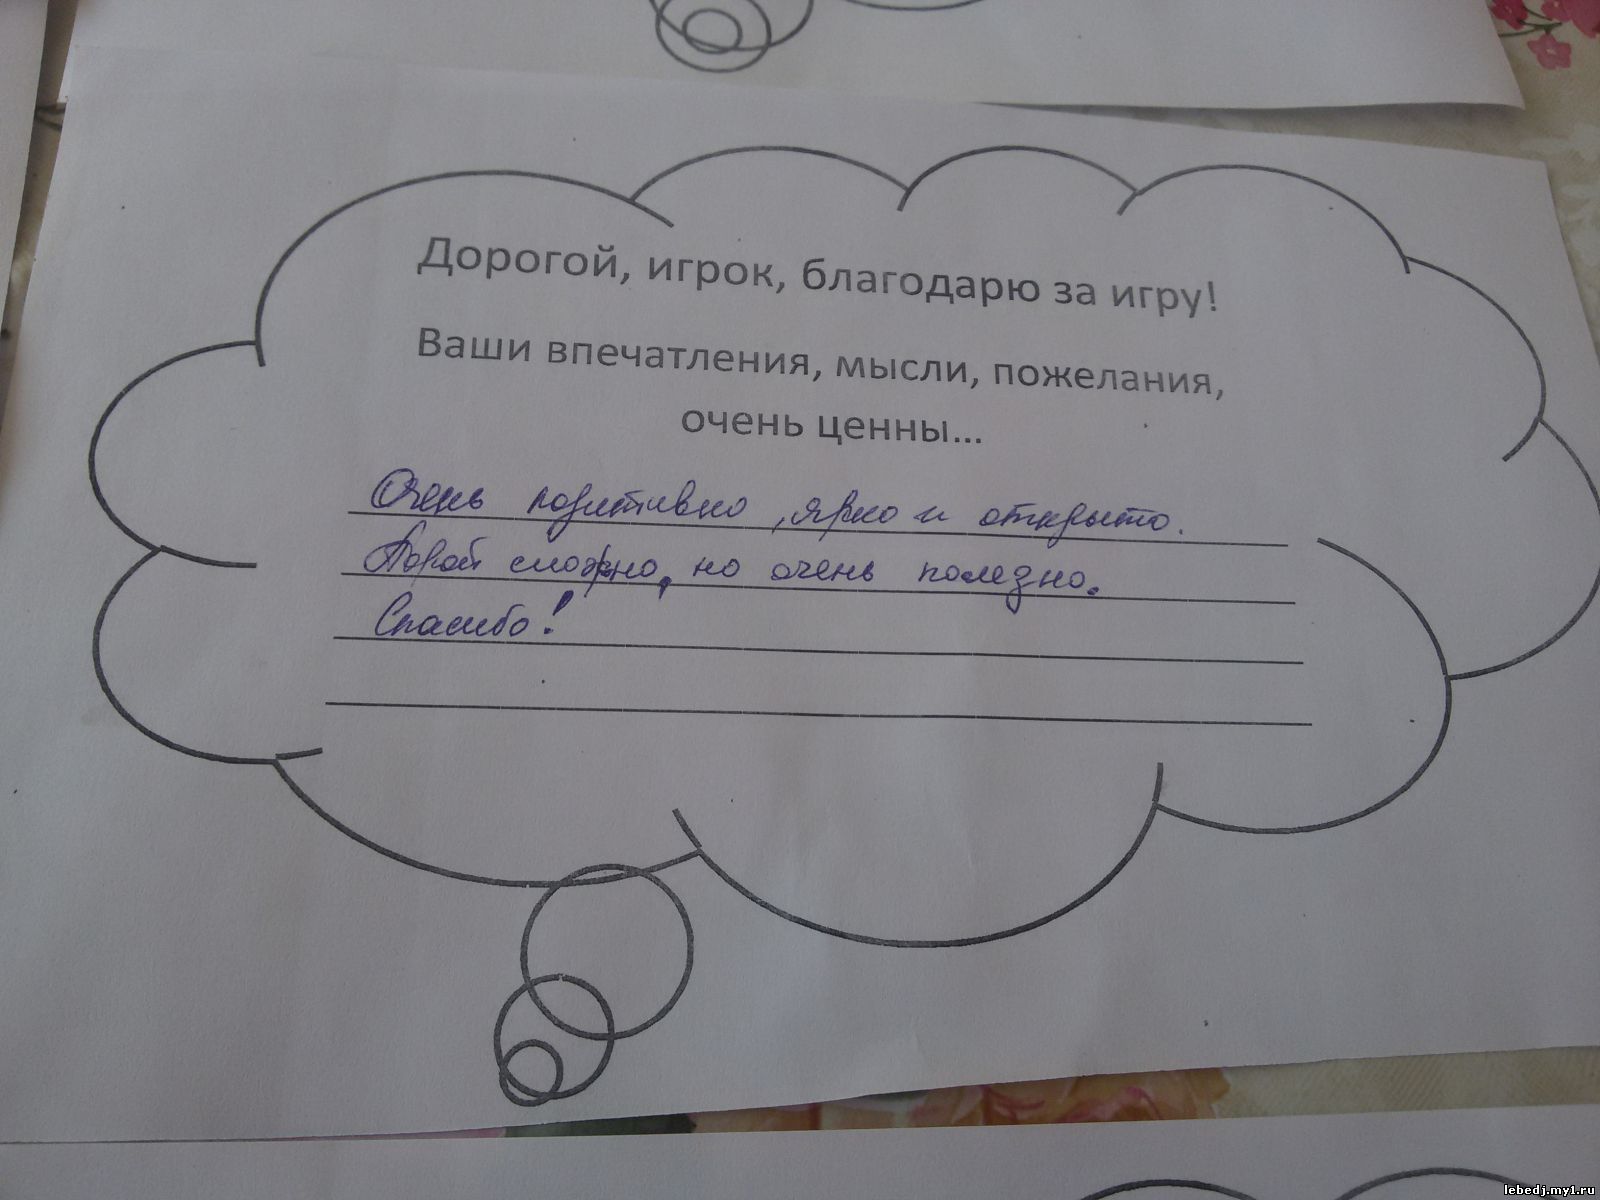 Дорогой, игрок, благодарю за игру!
Ваши впечатления, мысли, пожелания,
очень ценны...
Очень позитивно, ярко и открыто.
Порой сложно, но очень полезно.
Спасибо!
lebedj.my1.ru